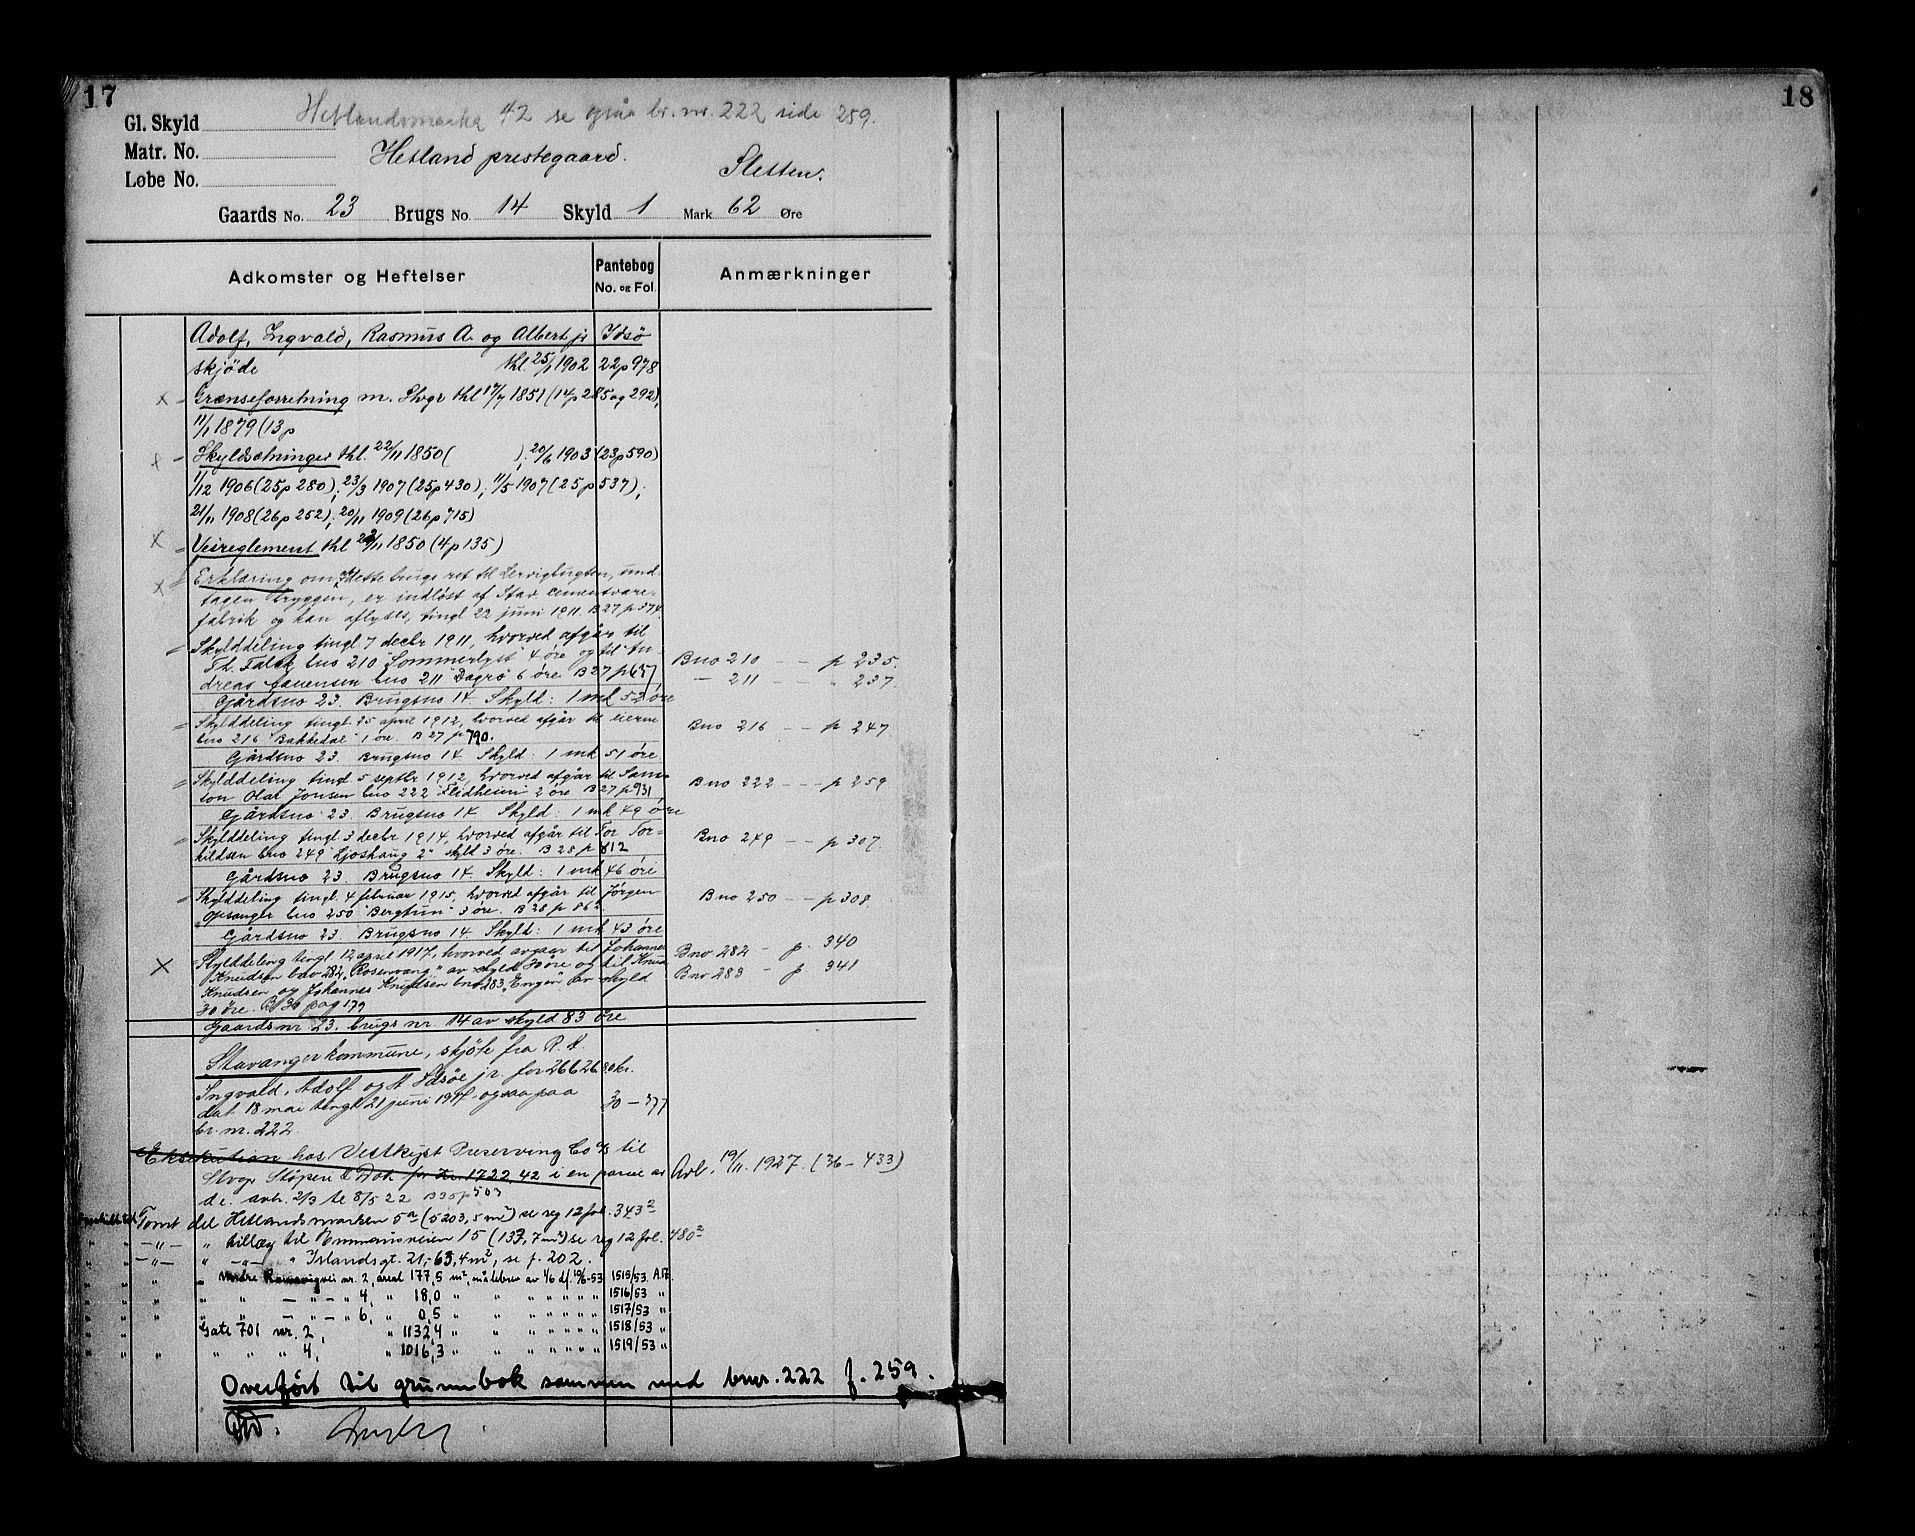 17
18
Hetlandsmarka 42 se også br.nr. 222 side 259.
Gl. Skyld
Matr. No.
Løbe No.
Hetland prestegaard.
Sletten.
Gaards No. 23 Brugs No 14 Skyld 1 Mark 62 Øre
Adkomster og Heftelser
Pantebog
No. og Fol.
Anmærkninger
Adolf, Ingvald, Rasmus A. og Albert jr Idsø
skjøde thl 25/1 1902 22p978
x - Grænseforretning m. Stvgr thl 17/7 1851 (14p285 og 292),
11/1 1879 (13p
x - Skyldsætninger thl. 22/11 1850 ( ); 20/6 1903 (23p590)
1/12 1906 (25p280); 23/3 1907 (25p430); 11/5 1907 (25p537);
21/11 1908 (26p252); 20/11 1909 (26p715)
x = Veireglement thl 22/11 1850 (4p135)
x = Erklæring om at dette brugs ret til Lervigbugten, und-
tagen bryggen, er indløst af Stav cementvare-
fabrik og kan aflyses, tingl 22 juni 1911 B27 p374
= Skylddeling tingl 7 decbr 1911, hvorved afgår til
Th. Falck bno 210 "Sommerlyst" 4 øre og til An-
dreas bno 211 "Dagro" 6 øre B27 p637
Bno 210 - - p 235.
- 211 - - " 237.
Gårdsno 23. Brugsno 14. Skyld: 1 mk 52 øre
= Skylddeling tingl 25 april 1912, hvorved afgår til eierne
bno 216 "Bakkedal" 1 øre. B27 p 790.
Bno 216 - - p 247
Gårdsno 23. Brugsno 14. Skyld: 1 mk 51 øre
= Skylddeling tingl 5 septbr 1912, hvorved afgår til Sam-
son Olai Jonsen bno 222 "Flidheim" 2 øre B27 p931
Bno 222 - - - p 259
Gårdsno 23. Brugsno 14. Skyld: 1 mk 49 øre
= Skylddeling tingl 3 decbr 1914, hvorved afgår til Tor Tor-
kildsen bno 249 "Ljoshaug 2" skyld 3 øre. B28 p 812
Bno 249 - - p 307.
Gårdsno 23. Brugsno 14. Skyld: 1 mk 46 øre
= Skylddeling tingl. 4 februar 1915, hvorved afgår til Jørgen
Opsanger bno 250 "Bergtun" 3 øre. B28 p 862
Bno 250 - - p 308
Gårdsno 23. Brugsno 14. Skyld: 1 mk 43 øre
x Skylddeling tingl 12 april 1917, hvorved avgaar til Johannes
Knudsen bno 282, "Rosenvang" av skyld 30 øre og til Knud
Knudsen og Johannes Knudsen bno 283, "Engen" av skyld
30 øre. B 30 pag 179
Bno 282 - p. 340
Bno 283 - p 341
Gaardsnr. 23, brugs nr. 14 av skyld 83 øre
Stavanger kommune, skjøte fra R. A.
Ingvald, Adolf og A Idsøe jr. for 26626.80 kr.
dat 18 mai tingl 21 juni 1917 ogsaa paa 30 - 377
br. nr. 222
Eksekution hos Vestkyst Preserving Co A/S til
Stvgr Støperi & Dok for kr. 1722,42 i en parsel av
d.e. avh. 2/3 te 8/5 22 B35p503
Avl. 19/11. 1927. (36-433)
Tomt del Hetlandsmarken 5a (5203,5 m²) se reg 12 fol. 343²
" " -"- " tillæg til Emmausveien 15 (137,7 m²) se reg 12 fol. 480²
" " -"- " -"- " Islandsgt. 21,- 63,4 m², se f. 202.
" " " nr. 2, areal 177,5 m², målebrev av 1/6 df. 19/6-53 1515/53 A.17.
" " " " " - " - " 4, " 18,0 " " " " " " " 1516/53 "
" " " " " - " - " 6, " 0,5 " " " " " " " 1517/53 "
" " " Gate 701 nr. 2, " 1132,4 " " " " " " " 1518/53 "
" " " " " " 4, " 1016,3 " " " " " " " 1519/53 "
Overført til grunnbok sammen med bnr. 222 f. 259.